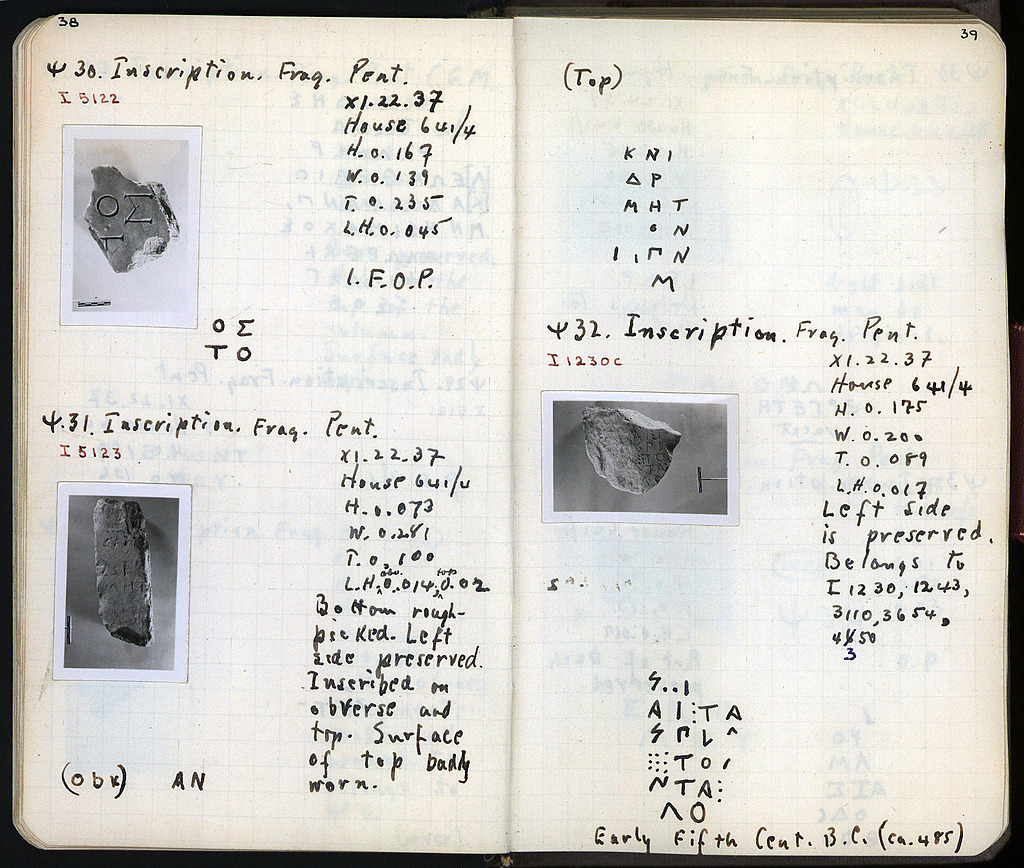 38
Ψ 30. Inscription. Frag. Pent.
I 5122
XI.22.37
House 641/4
H. 0.167
W. 0.139
T. 0.235
L.H. 0.045
I.F.O.P.
Ο Σ
Τ Ο
Ψ.31. Inscription. Frag. Pent.
I 5123
XI.22.37
House 641/4
H. 0.073
W. 0.281
T. 0.100
obv. top
L.H. 0.014, 0.02
Bottom rough-
picked. Left
side preserved.
Inscribed on
obverse and
top. Surface
of top badly
worn.
(Obv) ΑΝ
39
(Top)
Κ Ν Ι
Δ Ρ
Μ Η Τ
Ο Ν
Ι Ι Γ Ν
Μ
Ψ 32. Inscription. Frag. Pent.
I 1230c
XI.22.37
House 641/4
H. 0.175
W. 0.200
T. 0.089
L.H. 0.017
Left side
is preserved.
Belongs to
I 1230, 1243,
3110, 3654,
50
3
Α Ι ⋮ Τ Α
Τ Ο Ι
Ν Τ Α ⋮
Λ Ο
Early Fifth Cent. B.C. (ca. 485)